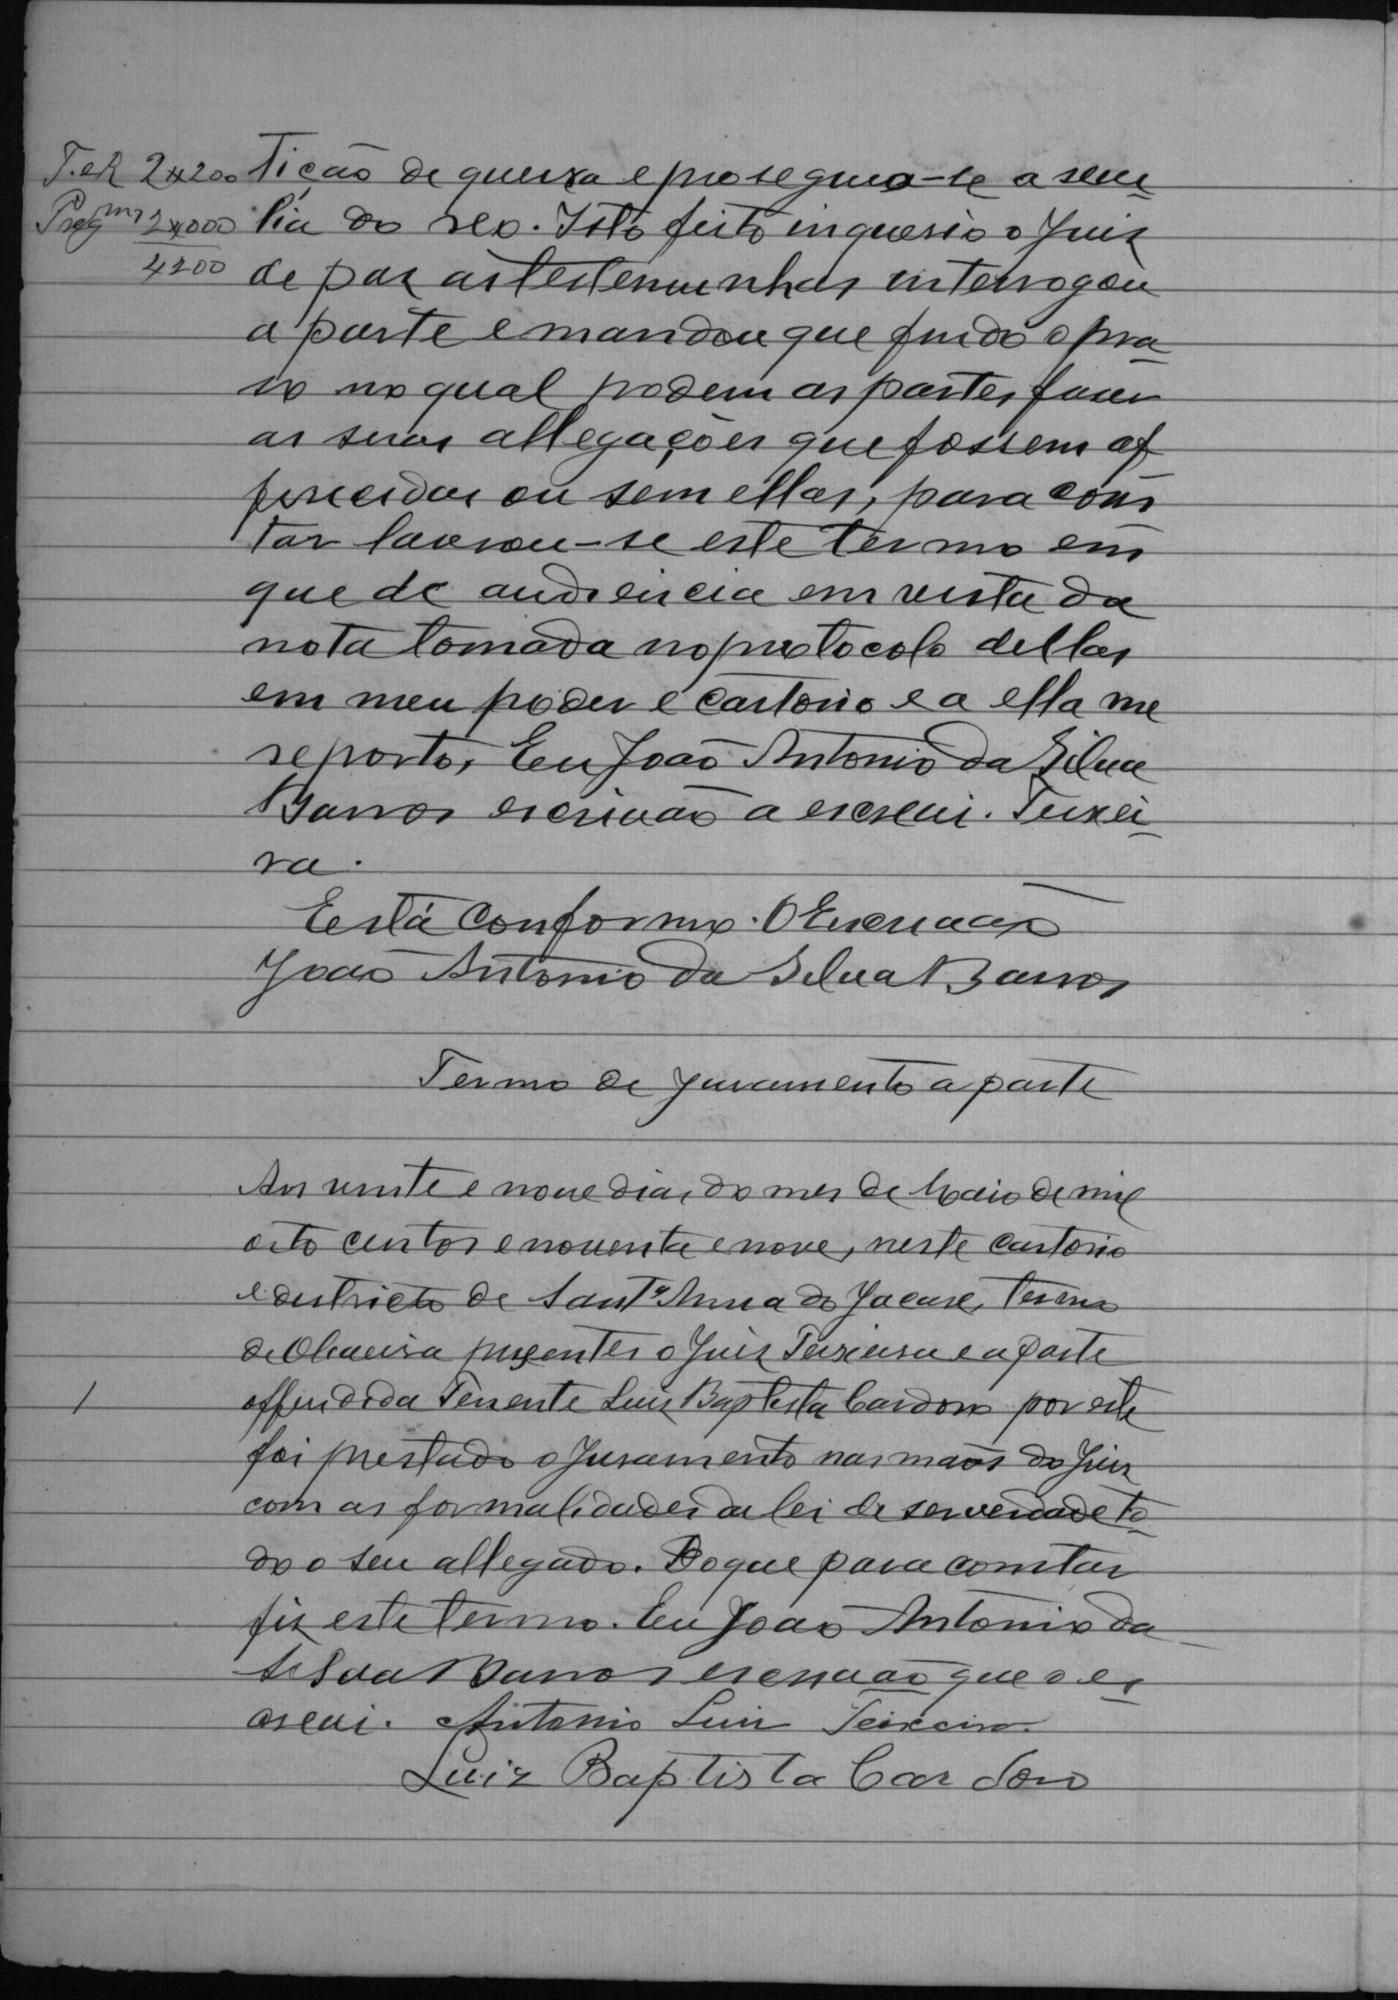 T. e R 2$200
Preg^ms 2$000
4200
tição de queixa e proseguio-se a reve
lia do reo. Isto feito inquerio o Juiz
de paz as testemunhas interrogou
a parte e mandou que findo o pra
so no qual podem as partes fazer
as suas allegações que fossem of
ferecidas ou sem ellas, para cons
tar lavrou-se este termo em
que de audiencia em vista da
nota tomada no protocolo dellas
em meu poder e cartorio e a ella me
reporto, Eu João Antonio da Silva
Barros escrivão a escrevi. Teixei
ra.
Está Conforme. O Escrivão
João Antonio da Silva Barros
Termo de juramento a parte
Aos vinte e nove dias do mes de Maio de mil
oito centos e noventa e nove, neste cartorio
e districto de Sant'Anna do Jacaré, termo
de Oliveira presentes o Juiz Teixeira e a parte
offendida Tenente Luiz Baptista Cardoso por este
foi prestado o Juramento nas mãos do Juiz
com as formalidades da lei de ser verdade to
do o seu allegado. Do que para constar
fiz este termo. Eu João Antonio da
Silva Barros escrivão que o es
crevi. Antonio Luiz Teixeira.
Luiz Baptista Cardoso